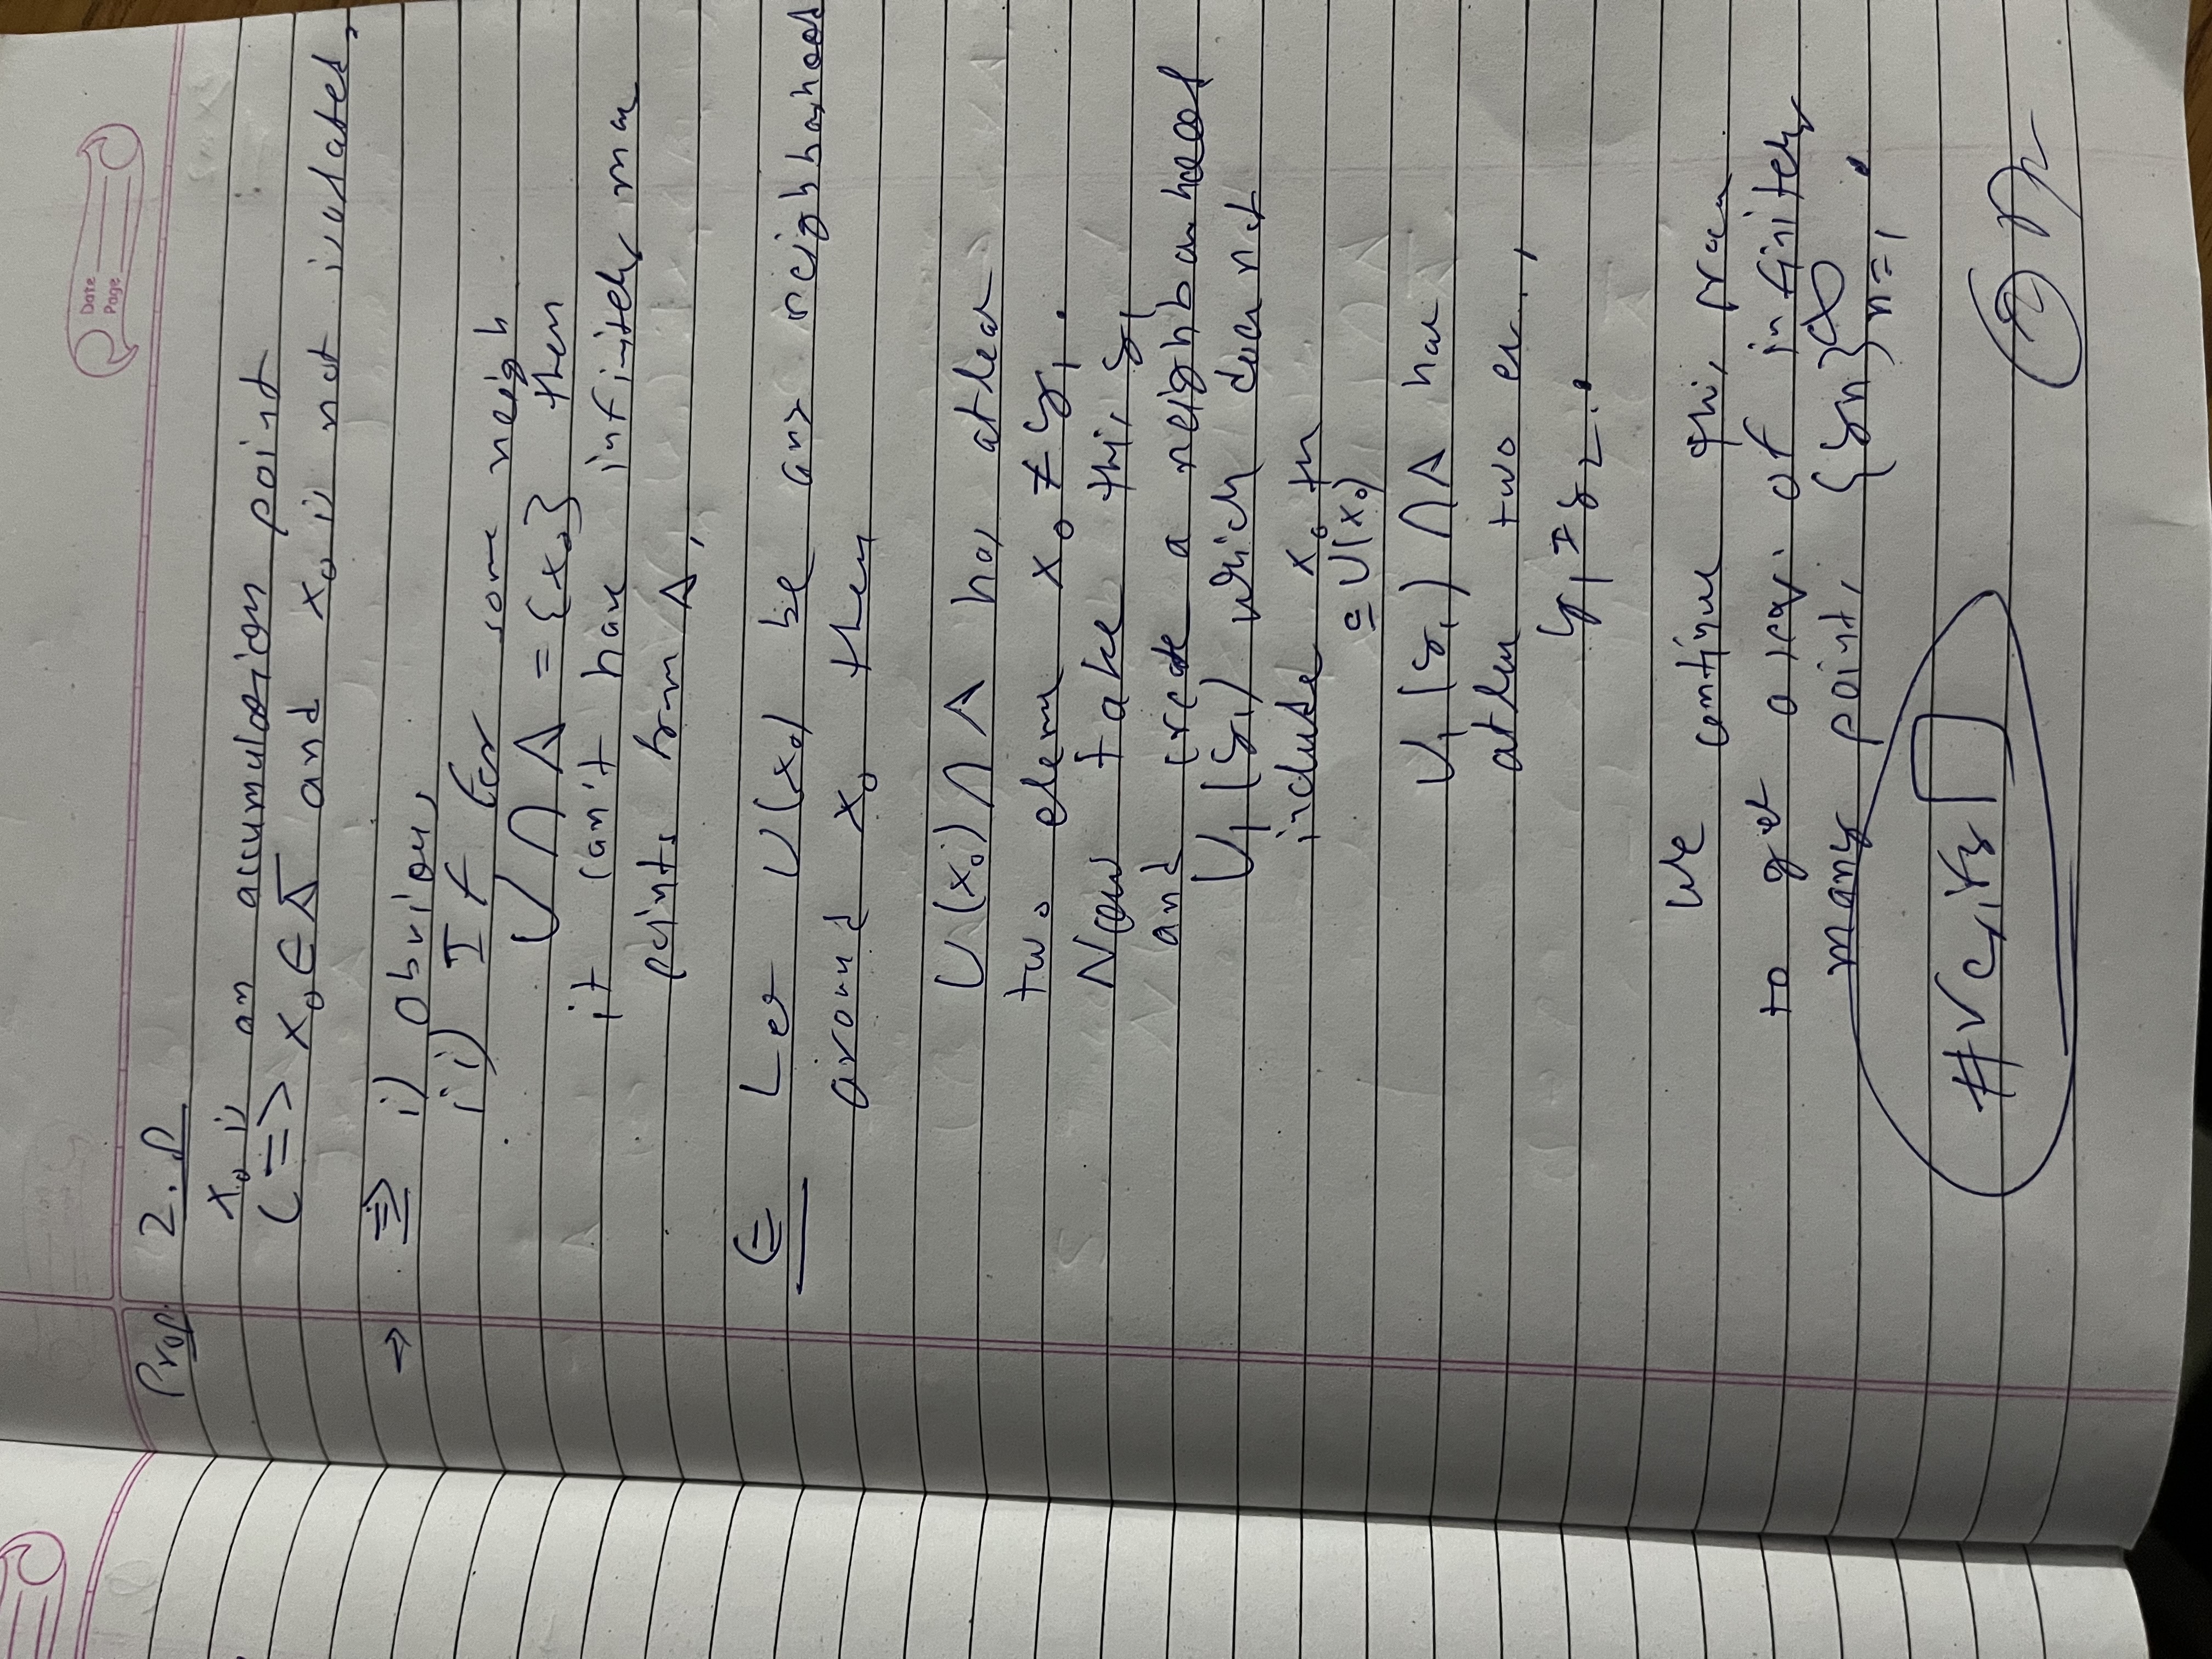 Date
Page
Prop. 2.8
x₀ is an accumulation point
(=> x₀ ∈ Ā and x₀ is not isolated.
→ ⇒ i) Obvious
ii) If for some neigh
U ∩ A = {x₀} then
it can't have infinitely man
points from A.
⇐ Let U(x₀) be any neighborhood
around x₀ then
U(x₀) ∩ A has atleat
two eleme x₀ ≠ y₁.
Now take this y₁
and create a neighborhood
U₁(y₁) which does not
include x₀ th
⊆ U(x₀)
U₁(y₁) ∩ A has
atlea two el..,
y₁ ≠ y₂.
We continue this proces
to get a seq. of infinitely
many points {yn}∞n=1.
#Verify
2